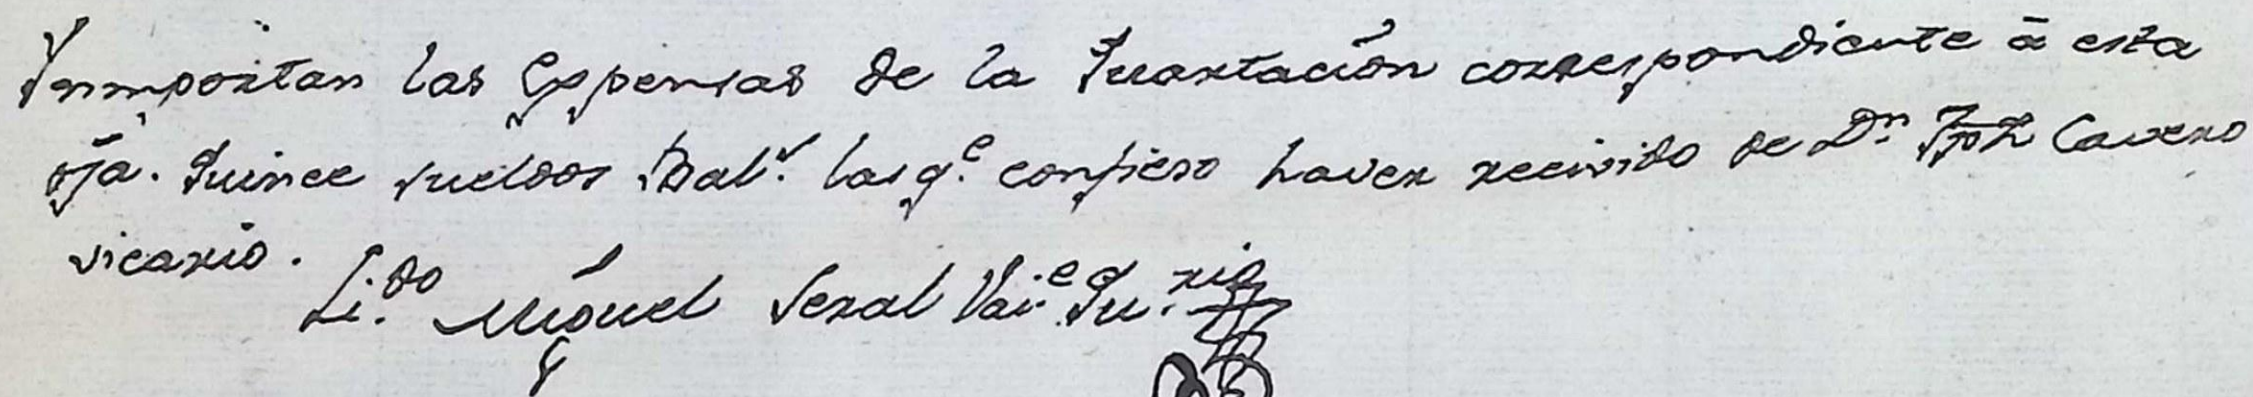 Ynmportan las Expensas de la Quartación correspondiente â esta
oja. Quince sueldos Val.s las q.e confieso haver recivido de Dn. Jph Cavero
vicario.
Li.do Miguel Seral